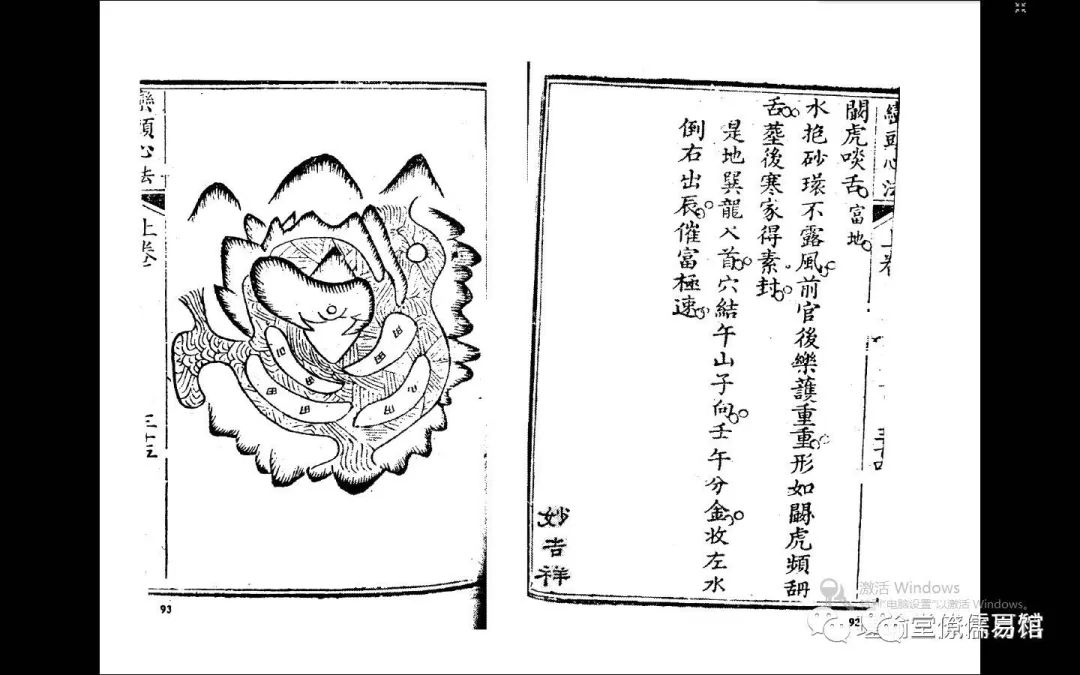 巒頭心法
上卷
闘虎啖舌 富地
水抱砂環不露風前官後樂護重重形如闘虎頻舑
舌塟後寒家得素封
是地巽龍入首穴結午山子向壬午分金收左水
倒右出辰催富極速
妙吉祥
92
頭心法
上卷
三十五
93
激活 Windows
"电脑设置"以激活 Windows。
堂僚儒易馆